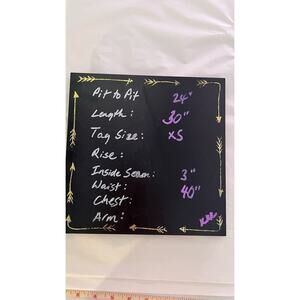 Pit to Pit 24"
Length: 30"
Tag Size: XS
Rise:
Inside Seam: 3"
Waist: 40"
Chest:
Arm: